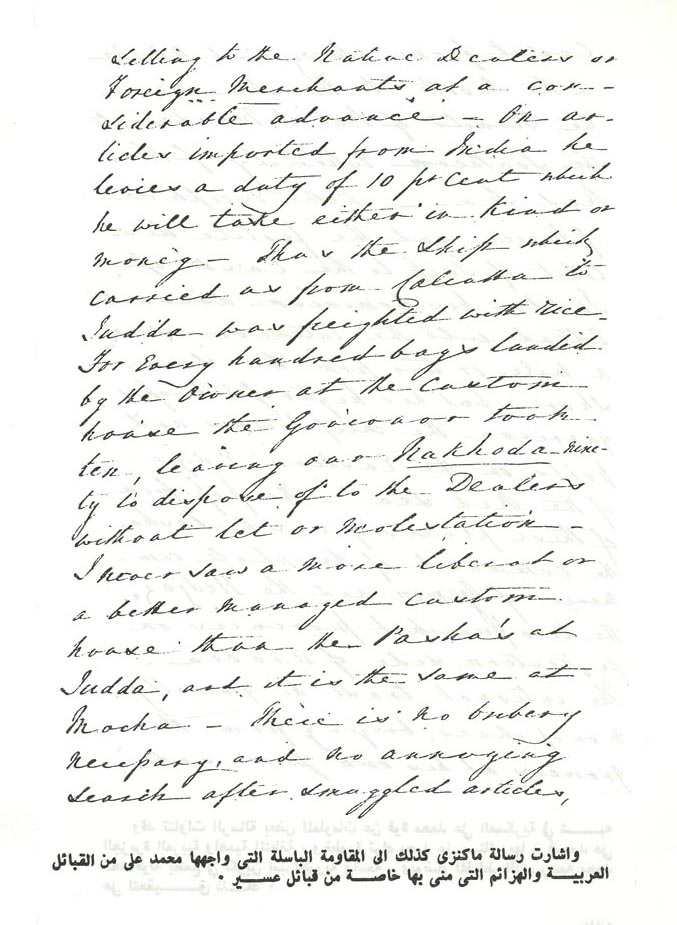 selling to the Native Dealers or
Foreign Merchants at a con-
siderable advance – On ar-
ticles imported from India he
levies a duty of 10 pr Cent which
he will take either in Kind or
money – Thus the Ship which
carried us from Calcutta to
Judda was freighted with rice –
For Every hundred bags landed
by the Owner at the Custom
house the Governor took
ten, leaving our Nakhoda nine-
ty to dispose of to the Dealers
without let or molestation –
I never saw a more liberal or
a better managed custom
house than the Pasha's at
Judda, and it is the same at
Mocha – There is no bribery
necessary, and no annoying
search after smuggled articles,
واشارت رسالة ماكنزى كذلك الى المقاومة الباسلة التى واجهها محمد على من القبائل
العربيـــة والهزائم التى منى بها خاصـــة من قبائل عســـير .